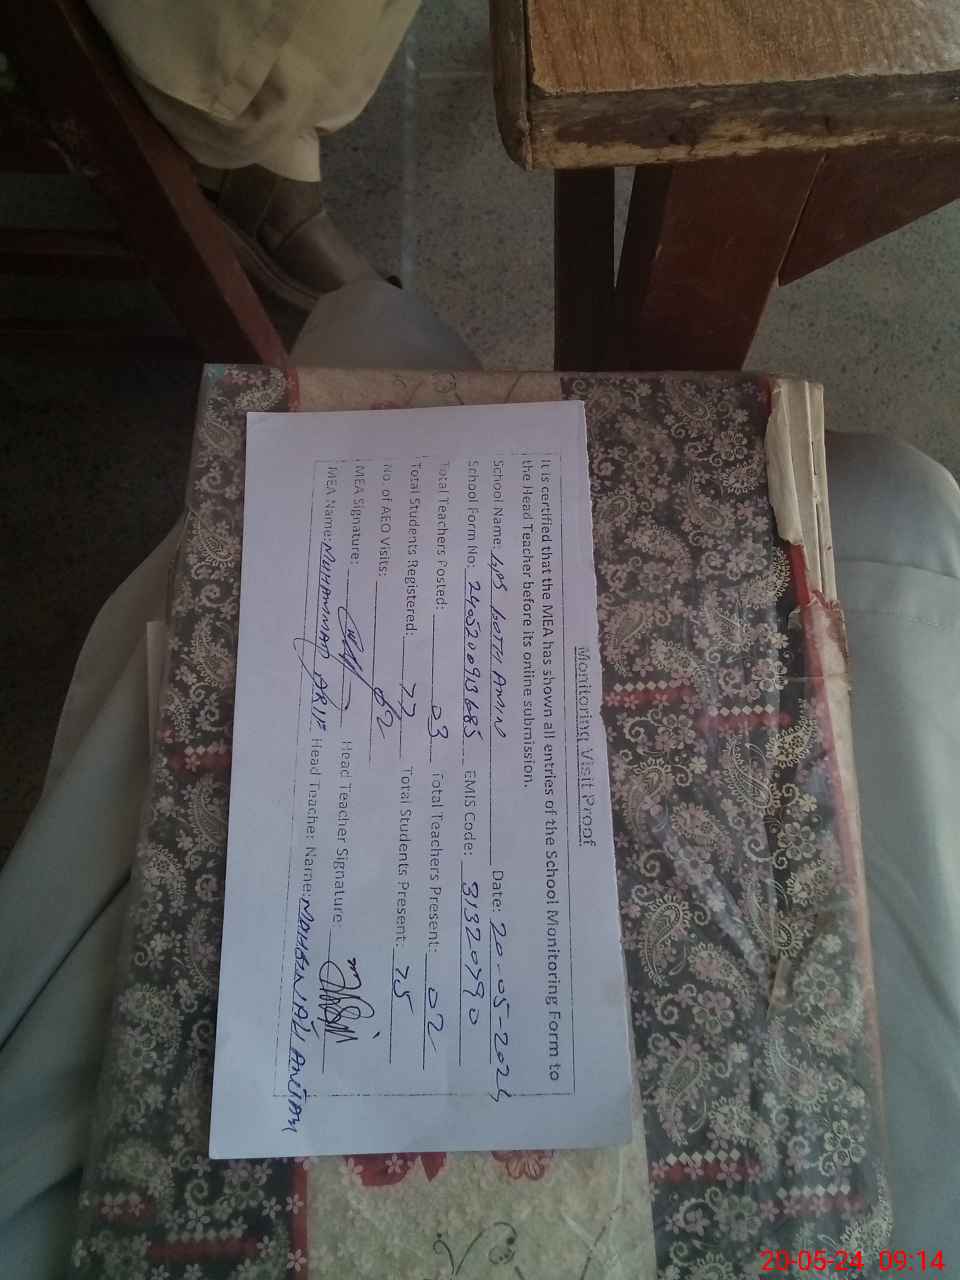 Monitoring Visit Proof
It is certified that the MEA has shown all entries of the School Monitoring Form to
the Head Teacher before its online submission.
School Name: GPS BOTH AMIN Date: 20-05-2024
School Form No: EMIS Code: 31320790
Total Teachers Posted: 03 Total Teachers Present: 02
Total Students Registered: 77 Total Students Present: 75
No. of AEO Visits: 02
MEA Signature: Head Teacher Signature:
MEA Name: MUHAMMAD ARIF Head Teacher Name:
20-05-24 09:14